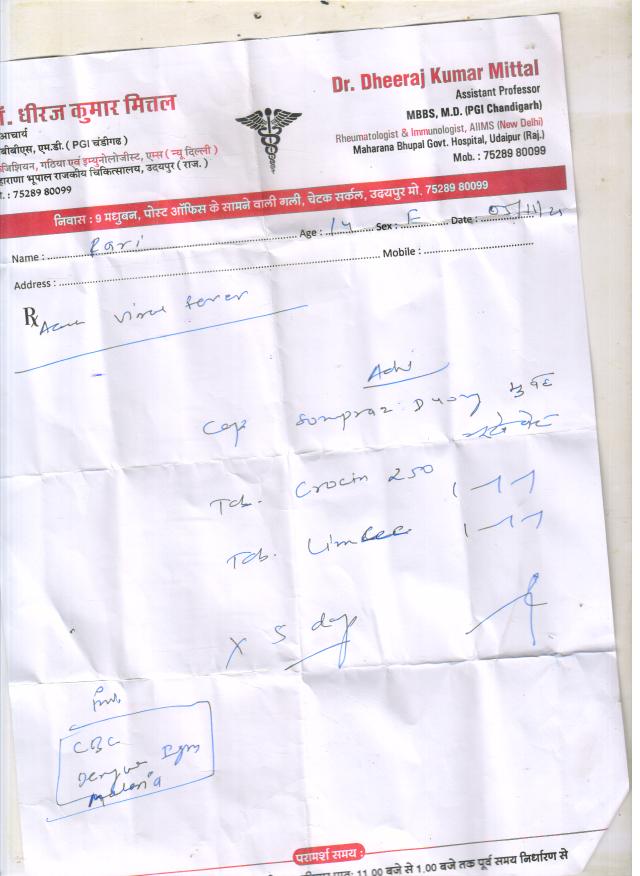 डॉ. धीरज कुमार मित्तल
आचार्य
बीबीएस, एम.डी. ( PGI चंडीगढ )
जिशियन, गठिया एवं इम्यूनोलोजीस्ट, एम्स ( न्यू दिल्ली )
हाराणा भूपाल राजकीय चिकित्सालय, उदयपुर ( राज. )
. : 75289 80099
Dr. Dheeraj Kumar Mittal
Assistant Professor
MBBS, M.D. (PGI Chandigarh)
Rheumatologist & Immunologist, AIIMS (New Delhi)
Maharana Bhupal Govt. Hospital, Udaipur (Raj.)
Mob. : 75289 80099
निवास : 9 मधुबन, पोस्ट ऑफिस के सामने वाली गली, चेटक सर्कल, उदयपुर मो. 75289 80099
Name : Age : 14 Sex : F Date : 05/11/21
Address : Mobile :
Rx
viral fever
Adv
Cap
Tab. Crocin 250 1-1-1
Tab. Limcee 1-1-1
x 5 day
CBC
Dengue Igm
Malaria
परामर्श समय :
11.00 बजे से 1.00 बजे तक पूर्व समय निर्धारण से